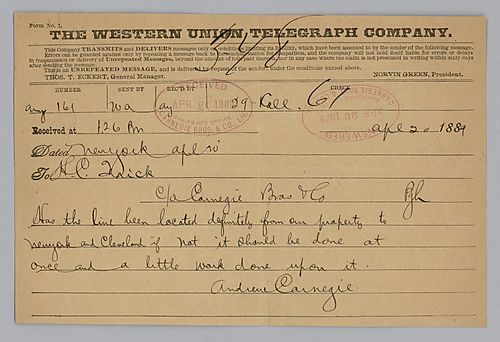 Form No. 1.
THE WESTERN UNION TELEGRAPH COMPANY.
This Company TRANSMITS and DELIVERS messages only on conditions limiting its liability, which have been assented to by the sender of the following message.
Errors can be guarded against only by repeating a message back to the sending station for comparison, and the company will not hold itself liable for errors or delays
in transmission or delivery of Unrepeated Messages, beyond the amount of tolls paid thereon, nor in any case where the claim is not presented in writing within sixty days
after sending the message.
This is an UNREPEATED MESSAGE, and is delivered by request of the sender, under the conditions named above.
THOS. T. ECKERT, General Manager. NORVIN GREEN, President.
NUMBER SENT BY REC'D BY CHECK
161 Wa 29
RECEIVED
APR 20 1889
CARNEGIE BROS. & CO., LIM.
ANSWERED
APR 20 1889
Received at 126 Pm Apl 20 1889
Dated Newyork Apl 20
To H.C. Frick
c/o Carnegie Bros & Co Pgh
Has the line been located definitely from our property to
Newyork and Cleveland if not it should be done at
once and a little work done upon it.
Andrew Carnegie.